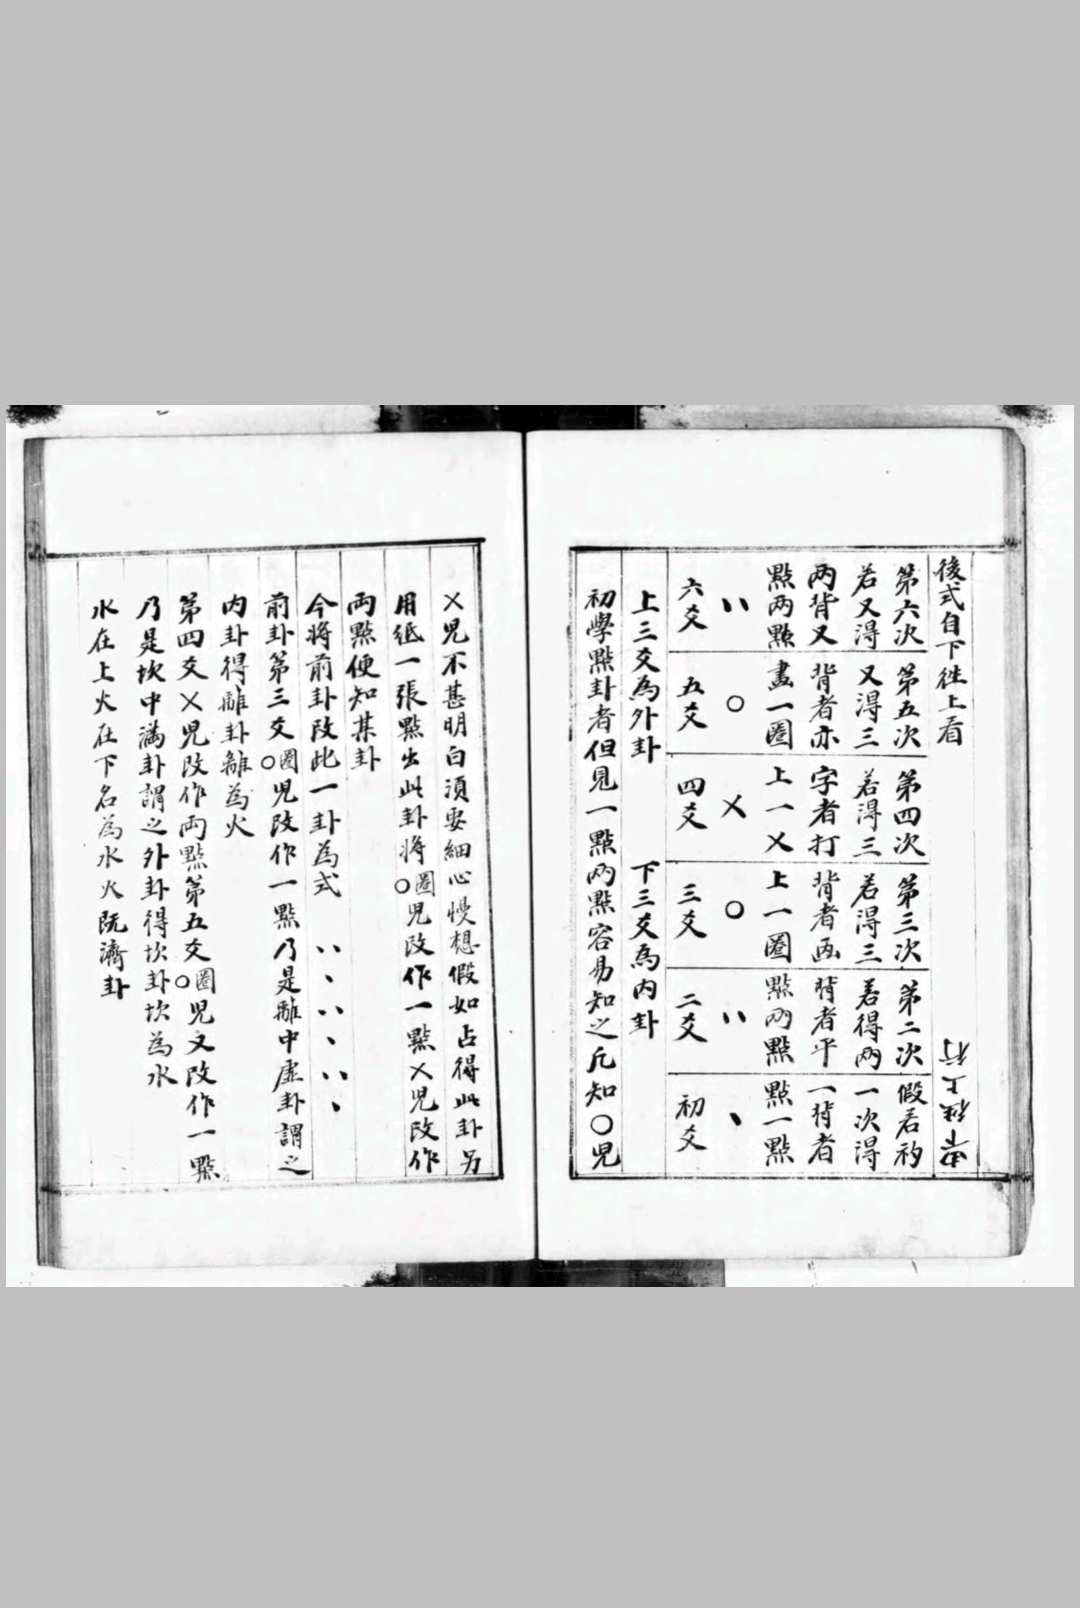 後式自下徃上看
徃上行
第六次
若又得
两背又
點两點
、、
六爻
第五次
又得三
背者亦
畫一圈
○
五爻
第四次
若得三
字者打
上一乂
乂
四爻
第三次
若得三
背者画
上一圈
○
三爻
第二次
若得两
背者平
點两點
、、
二爻
假若初
一次得
一背者
點一點
、
初爻
上三爻為外卦 下三爻為内卦
初學點卦者但見一點两點容易知之凡知○児
乂児不甚明白須要細心慢想假如占得此卦另
用紙一張點出此卦將○圈児改作一點乂児改作
両點便知某卦
今將前卦改此一卦為式 、、 、 、、 、 、、 、
前卦第三爻○圈児改作一點乃是離中虛卦謂之
内卦得離卦離為火
第四爻乂児改作両點第五爻○圈児又改作一點
乃是坎中满卦謂之外卦得坎卦坎為水
水在上火在下名為水火既濟卦